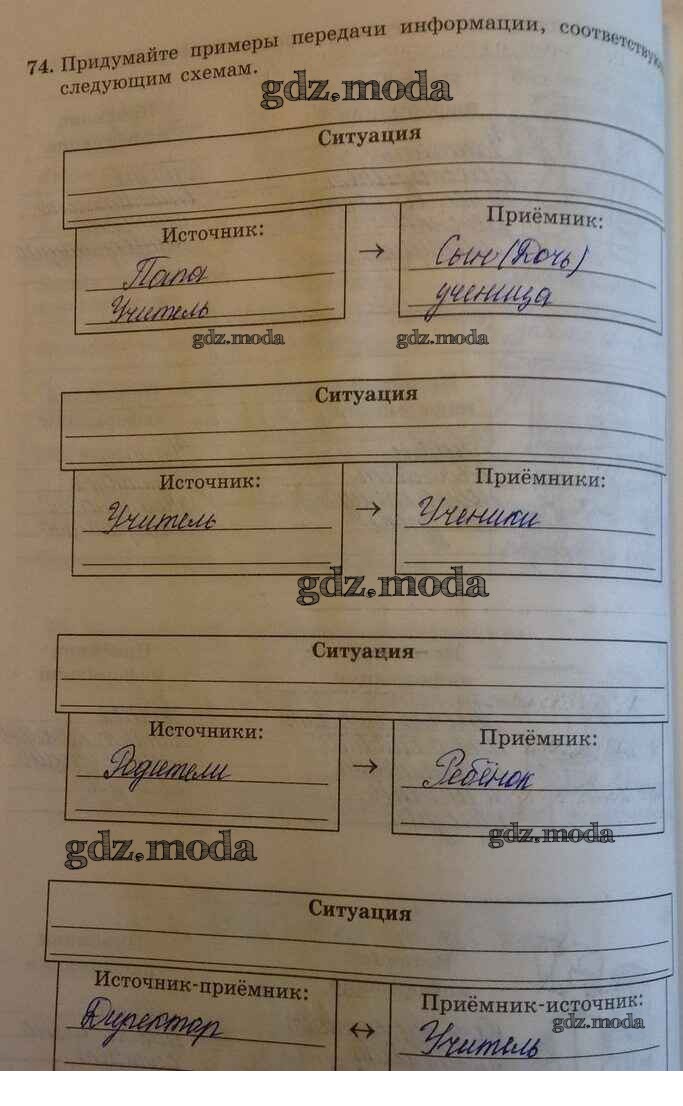 74. Придумайте примеры передачи информации, соответствую
следующим схемам.
gdz.moda
Ситуация
Источник:
Папа
Учитель
→
Приёмник:
Сын (Дочь)
ученица
gdz.moda
gdz.moda
Ситуация
Источник:
Учитель
→
Приёмники:
Ученики
gdz.moda
Ситуация
Источники:
Родители
→
Приёмник:
Ребёнок
gdz.moda
gdz.moda
Ситуация
Источник-приёмник:
Директор
↔
Приёмник-источник:
gdz.moda
Учитель